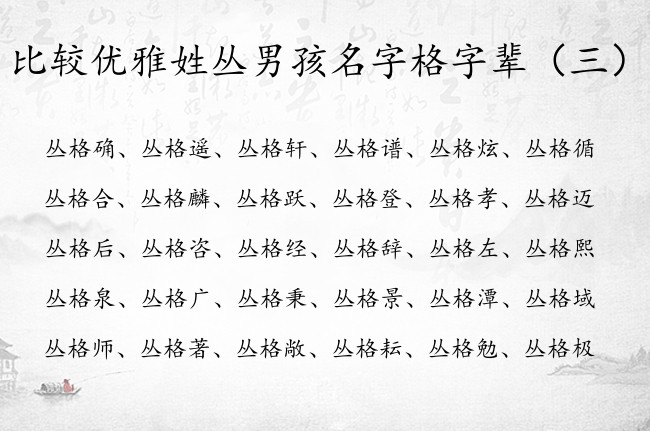 比较优雅姓丛男孩名字格字辈（三）
丛格确、丛格遥、丛格轩、丛格谱、丛格炫、丛格循
丛格合、丛格麟、丛格跃、丛格登、丛格孝、丛格迈
丛格后、丛格咨、丛格经、丛格辞、丛格左、丛格熙
丛格泉、丛格广、丛格秉、丛格景、丛格潭、丛格域
丛格师、丛格著、丛格敞、丛格耘、丛格勉、丛格极